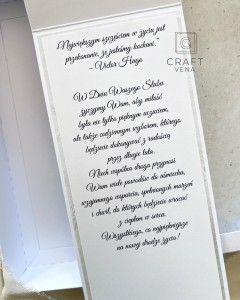 C
CRAFT
VENA
„Największym szczęściem w życiu jest
przekonanie, że jesteśmy kochani."
– Victor Hugo
W Dniu Waszego Ślubu
życzymy Wam, aby miłość
była nie tylko pięknym uczuciem,
ale także codziennym wyborem, którego
będziecie dokonywać z radością
przez długie lata.
Niech wspólna droga przynosi
Wam wiele powodów do uśmiechu,
wzajemnego wsparcia, spełnionych marzeń
i chwil, do których będziecie wracać
z ciepłem w sercu.
Wszystkiego, co najpiękniejsze
na nowej drodze życia!